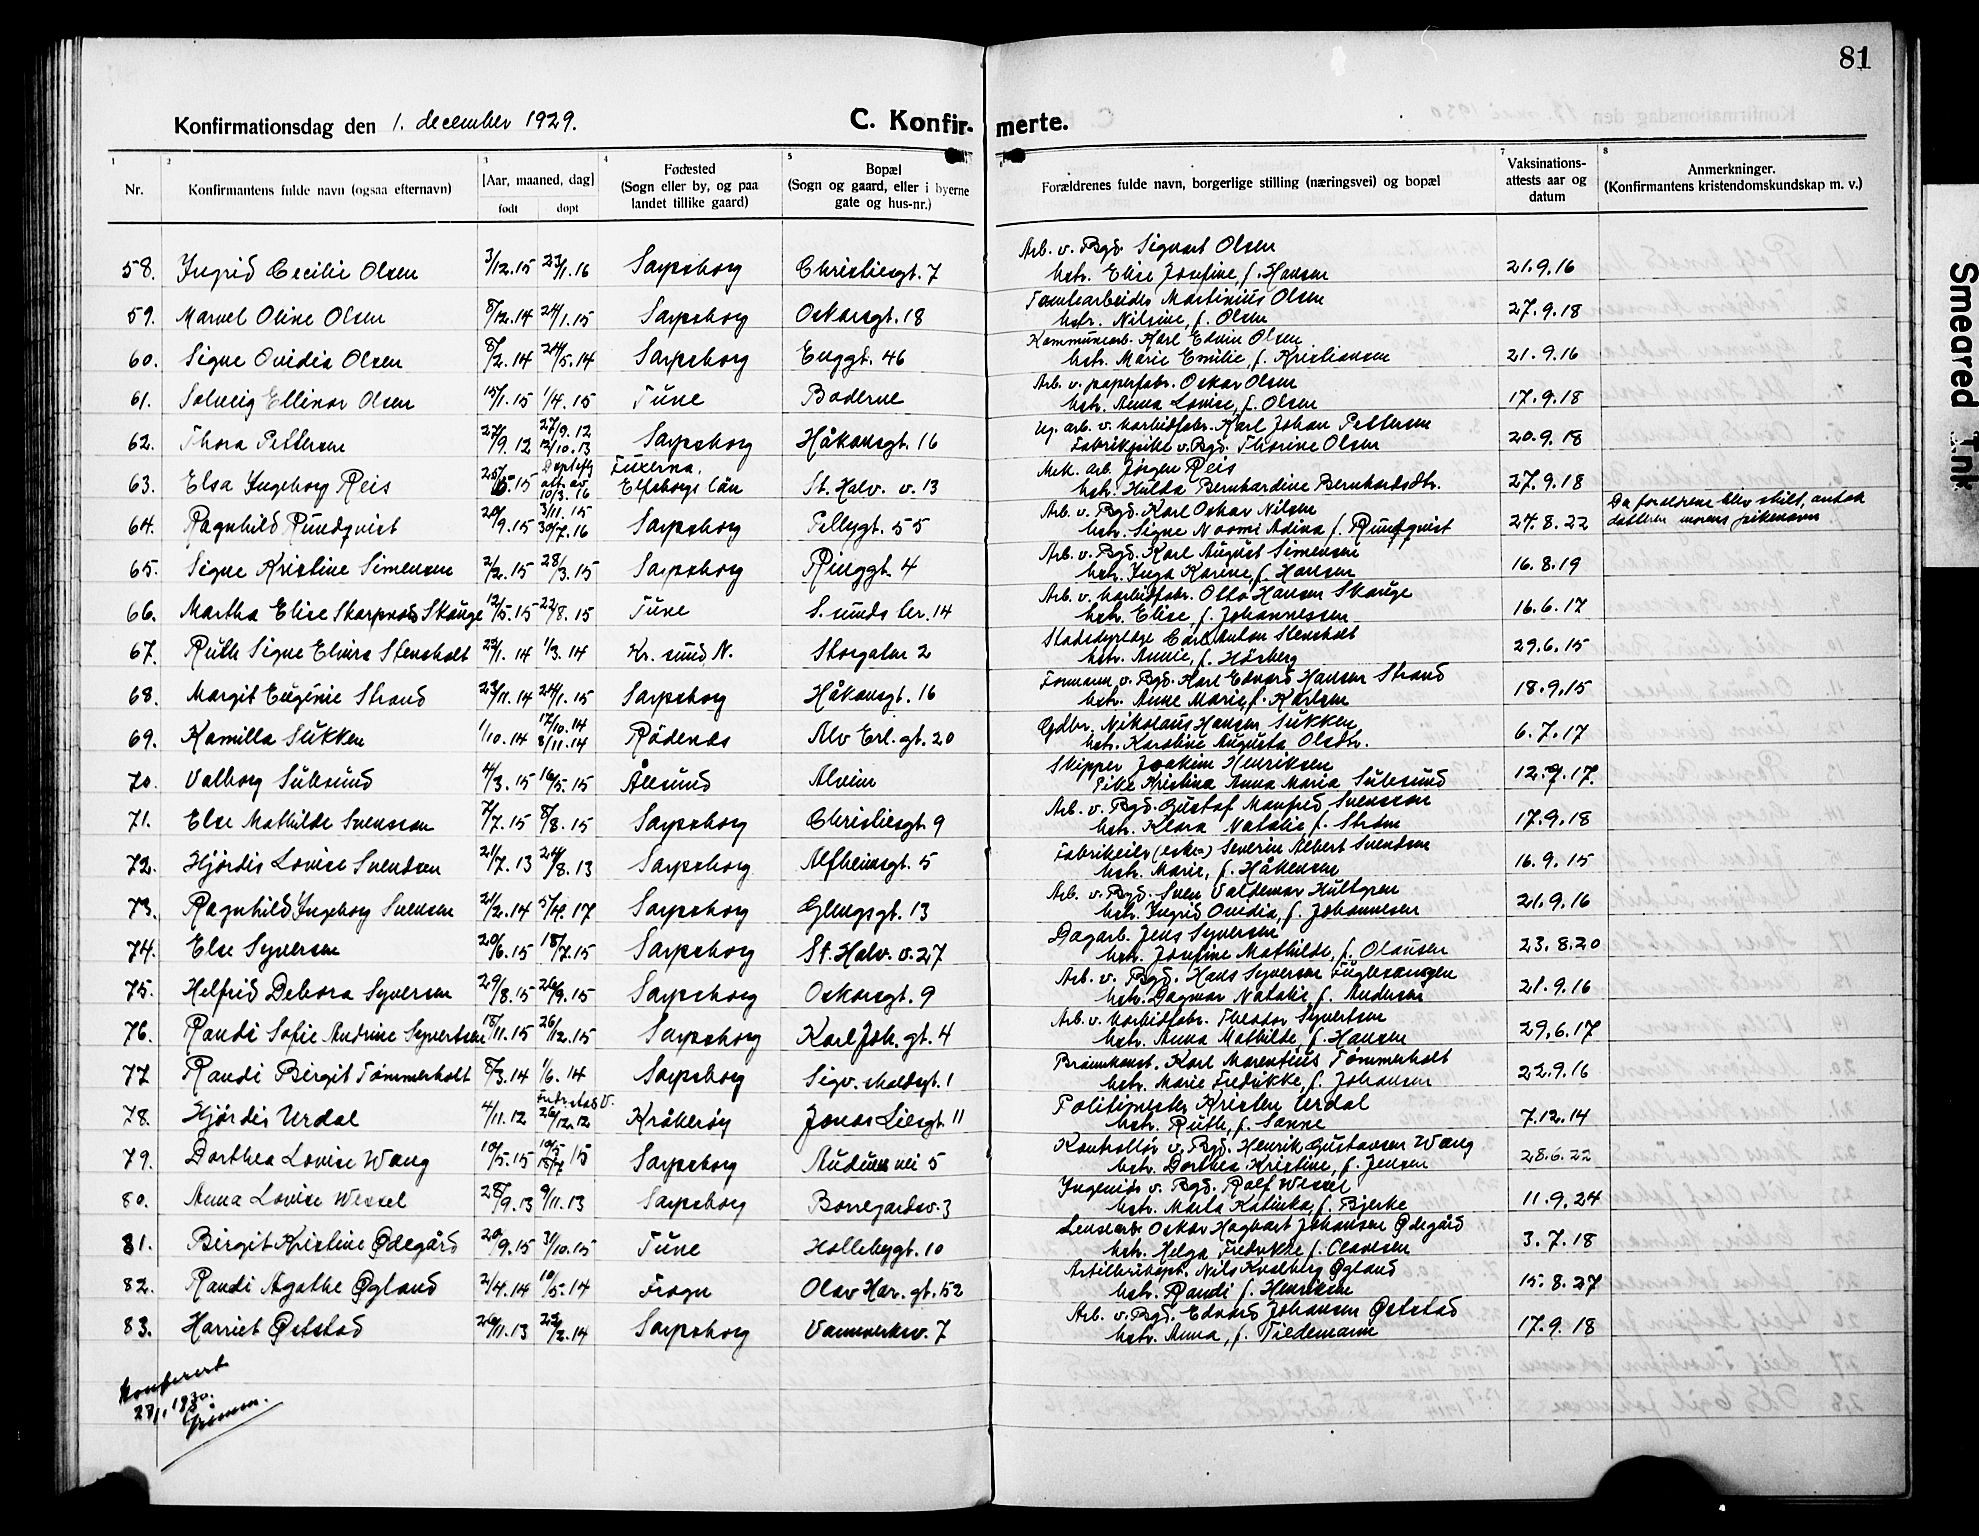 81
Konfirmationsdag den 1. december 1929.
C. Konfirmerte.
1 2 3 4 5 7 8
Nr.
Konfirmantens fulde navn (ogsaa efternavn)
[Aar, maaned, dag]
født døpt
Fødested
(Sogn eller by, og paa
landet tillike gaard)
Bopæl
(Sogn og gaard, eller i byerne
gate og hus-nr.)
Forældrenes fulde navn, borgerlige stilling (næringsvei) og bopæl
Vaksinations-
attests aar og
datum
Anmerkninger.
(Konfirmantens kristendomskundskap m. v.)
58. Ingrid Cecilie Olsen 3/12.15 23/1.16 Sarpsborg Christiesgt. 7 Arb. v. Bgd. Sigvart Olsen
hstr. Elise Josefine, f. Hansen 21.9.16
59. Marvel Oline Olsen 8/12.14 24/1.15 Sarpsborg Oskarsgt. 18 Tomtearbeider Martinius Olsen
hstr. Nilsine, f. Olsen 27.9.18
60. Signe Ovidia Olsen 8/2.14 24/5.14 Sarpsborg Enggt. 46 Kommunearb. Karl Edvin Olsen
hstr. Marie Emilie, f. Kristiansen 21.9.16
61. Solveig Ellinor Olsen 15/1.15 1/4.15 Tune Boderne Arb. v. papirfabr. Oskar Olsen
hstr. Anna Lovise, f. Olsen 17.9.18
62. Thora Pettersen 27/9.12 27/9.12 12/10.13 Sarpsborg Håkonsgt. 16 Ug. arb. v. karbidfabr. Karl Johan Pettersen
Fabrikpike v. Bgd. Thorine Olsen 20.9.18
63. Elsa Ingeborg Reis 25/5.15 Døpt eft. att. av 10/3.16 Fuxerna, Elfsborgs län St. Halv. v. 13 Mek. arb. Jörgen Reis
hstr. Hulda Bernhardine Bernhardsdtr. 27.9.18
64. Ragnhild Rundqvist 20/9.15 3/11.15 30/7.16 Sarpsborg Pellygt. 55 Arb. v. Bgd. Karl Oskar Nilsen
hstr. Signe Noomi Adina f. Rundqvist 24.8.22 Da foreldrene blev skilt, antok
datteren morens pikenavn
65. Signe Kristine Simensen 2/2.15 28/3.15 Sarpsborg Ringgt. 4 Arb. v. Bgd. Karl August Simensen
hstr. Inga Karine, f. Hansen 16.8.19
66. Martha Elise Skarpnord Skauge 12/5.15 22/8.15 Tune S. sunds br. 14 Arb. v. karbidfabr. Otto Hansen Skauge
hstr. Elise, f. Johannessen 16.6.17
67. Ruth Signe Elvira Stensholt 22/1.14 1/3.14 Kr. sund N. Storgaten 2 Stadsdyrlæge Carl Anton Stensholt
hstr. Annie, f. Hösberg 29.6.15
68. Margit Eugénie Strand 23/11.14 24/1.15 Sarpsborg Håkonsgt. 16 Formann v. Bgd. Karl Edvard Hansen Strand
hstr. Anne Marie, f. Karlsen 18.9.15
69. Kamilla Sukken 1/10.14 17/10.14 8/11.14 Rödenes Alv Erl. gt. 20 Gdbr. Nikolaus Hansen Sukken
hstr. Karoline Augusta Olsdtr. 6.7.17
70. Valborg Sulesund 4/3.15 16/5.15 Ålesund Alveim Skipper Joakim Henriksen
Pike Kristina Anna Maria Sulesund 12.9.17.
71. Else Mathilde Svensson 7/7.15 8/8.15 Sarpsborg Christiesgt. 9 Arb. v. Bgd. Gustaf Manfred Svensson
hstr. Klara Natalie, f. Ström 17.9.18
72. Hjördis Lovise Svendsen 21/7.13 24/8.13 Sarpsborg Alfheimsgt. 5 Fabrikeier (eske) Severin Albert Svendsen
hstr. Marie, f. Håkensen 16.9.15
73. Ragnhild Ingeborg Svensen 21/2.14 5/4.17 Sarpsborg Glengsgt. 13 Arb. v. Bgd. Sven Valdemar Hultgren
hstr. Ingrid Ovidia, f. Johannesen 21.9.16
74. Else Syversen 20/6.15 18/7.15 Sarpsborg St. Halv. v. 27 Dagarb. Jens Syversen
hstr. Josefine Mathilde, f. Olausen 23.8.20
75. Helfrid Debora Syversen 29/8.15 26/9.15 Sarpsborg Oskarsgt. 9 Arb. v. Bgd. Hans Syversen Fuglesangen
hstr. Dagmar Natalie f. Andersen 21.9.16
76. Randi Sofie Andrine Syvertsen 18/11.15 26/12.15 Sarpsborg Karl Joh. gt. 4 Arb. v. karbidfabr. Theodor Syvertsen
hstr. Anna Mathilde, f. Hansen 29.6.17
77 Randi Birgit Tömmerholt 8/3.14 1/6.14 Sarpsborg Sigv. skaldsgt. 1 Brannkonst. Karl Marentius Tömmerholt
hstr. Marie Fredrikke, f. Johansen 22.9.16
78. Hjördis Urdal 4/11.12 Fredrstad V. 26/12.12 Kråkeröy Jonas Liesgt. 11 Politimester Kristen Urdal
hstr. Ruth, f. Sanne 7.12.14
79. Dorthea Lovise Wang 10/5.15 10/5 18/7 15 Sarpsborg Auduns vei 5 Kontrollör v. Bgd. Henrik Gustavsen Wang
hstr. Dorthea Kristine, f. Jensen 28.6.22
80. Anna Lovise Wessel 28/9.13 9/11.13 Sarpsborg Borregardsv. 3 Ingeniör v. Bgd. Rolf Wessel
hstr. Marta Katinka, f. Bjerke 11.9.24
81. Birgit Kristine Ødegård 20/9.15 31/10.15 Tune Hollebygt. 10 Lensearb. Oskar Hagbart Johansen Ødegård
hstr. Helga Fredrikke f. Olavesen 3.7.18
82. Randi Agathe Øgland 2/4.14 10/5.14 Frogn Olav Har. gt. 52 Artillerikapt. Nils Kvalberg Øgland
hstr. Randi f. Henriksen 15.8.27
83. Harriet Øststad 26/11.13 22/2.14 Sarpsborg Vannverksv. 7 Arb. v. Bgd. Edvard Johansen Øststad
hstr. Anna, f. Tiedemann 17.9.18
Konferert
28/1.1930.
Smeared Ink